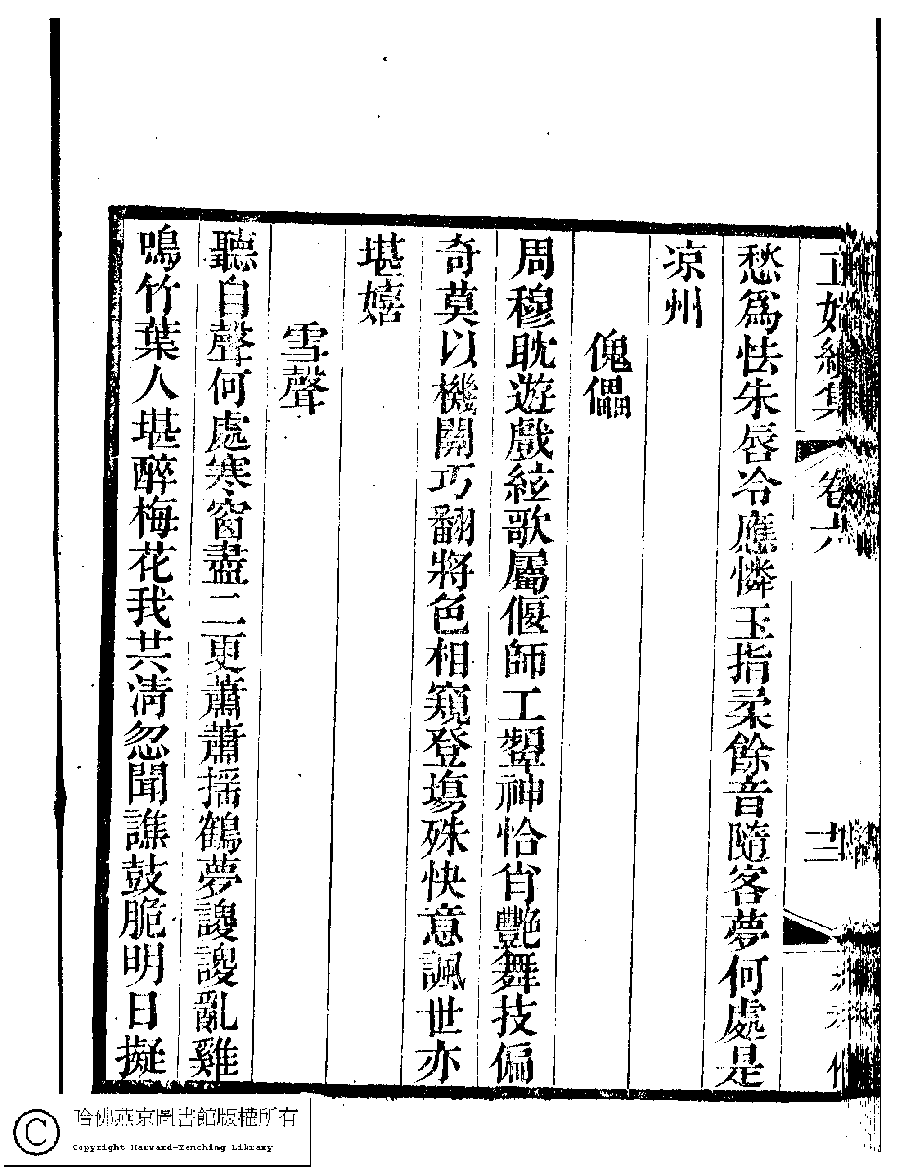 愁爲怯朱唇冷應憐玉指柔餘音隨客夢何處是
凉州
傀儡
周穆耽遊戲絃歌屬偃師工顰神恰肖艷舞技偏
奇莫以機關巧翻將色相窺登塲殊快意諷世亦
堪嬉
雪聲
聽自聲何處寒窗盡二更蕭蕭揺鶴夢謖謖亂雞
鳴竹葉人堪醉梅花我共清忽聞譙鼓脆明日擬
卷六
哈佛燕京圖書館版權所有
Copyright Harvard-Yenching Library